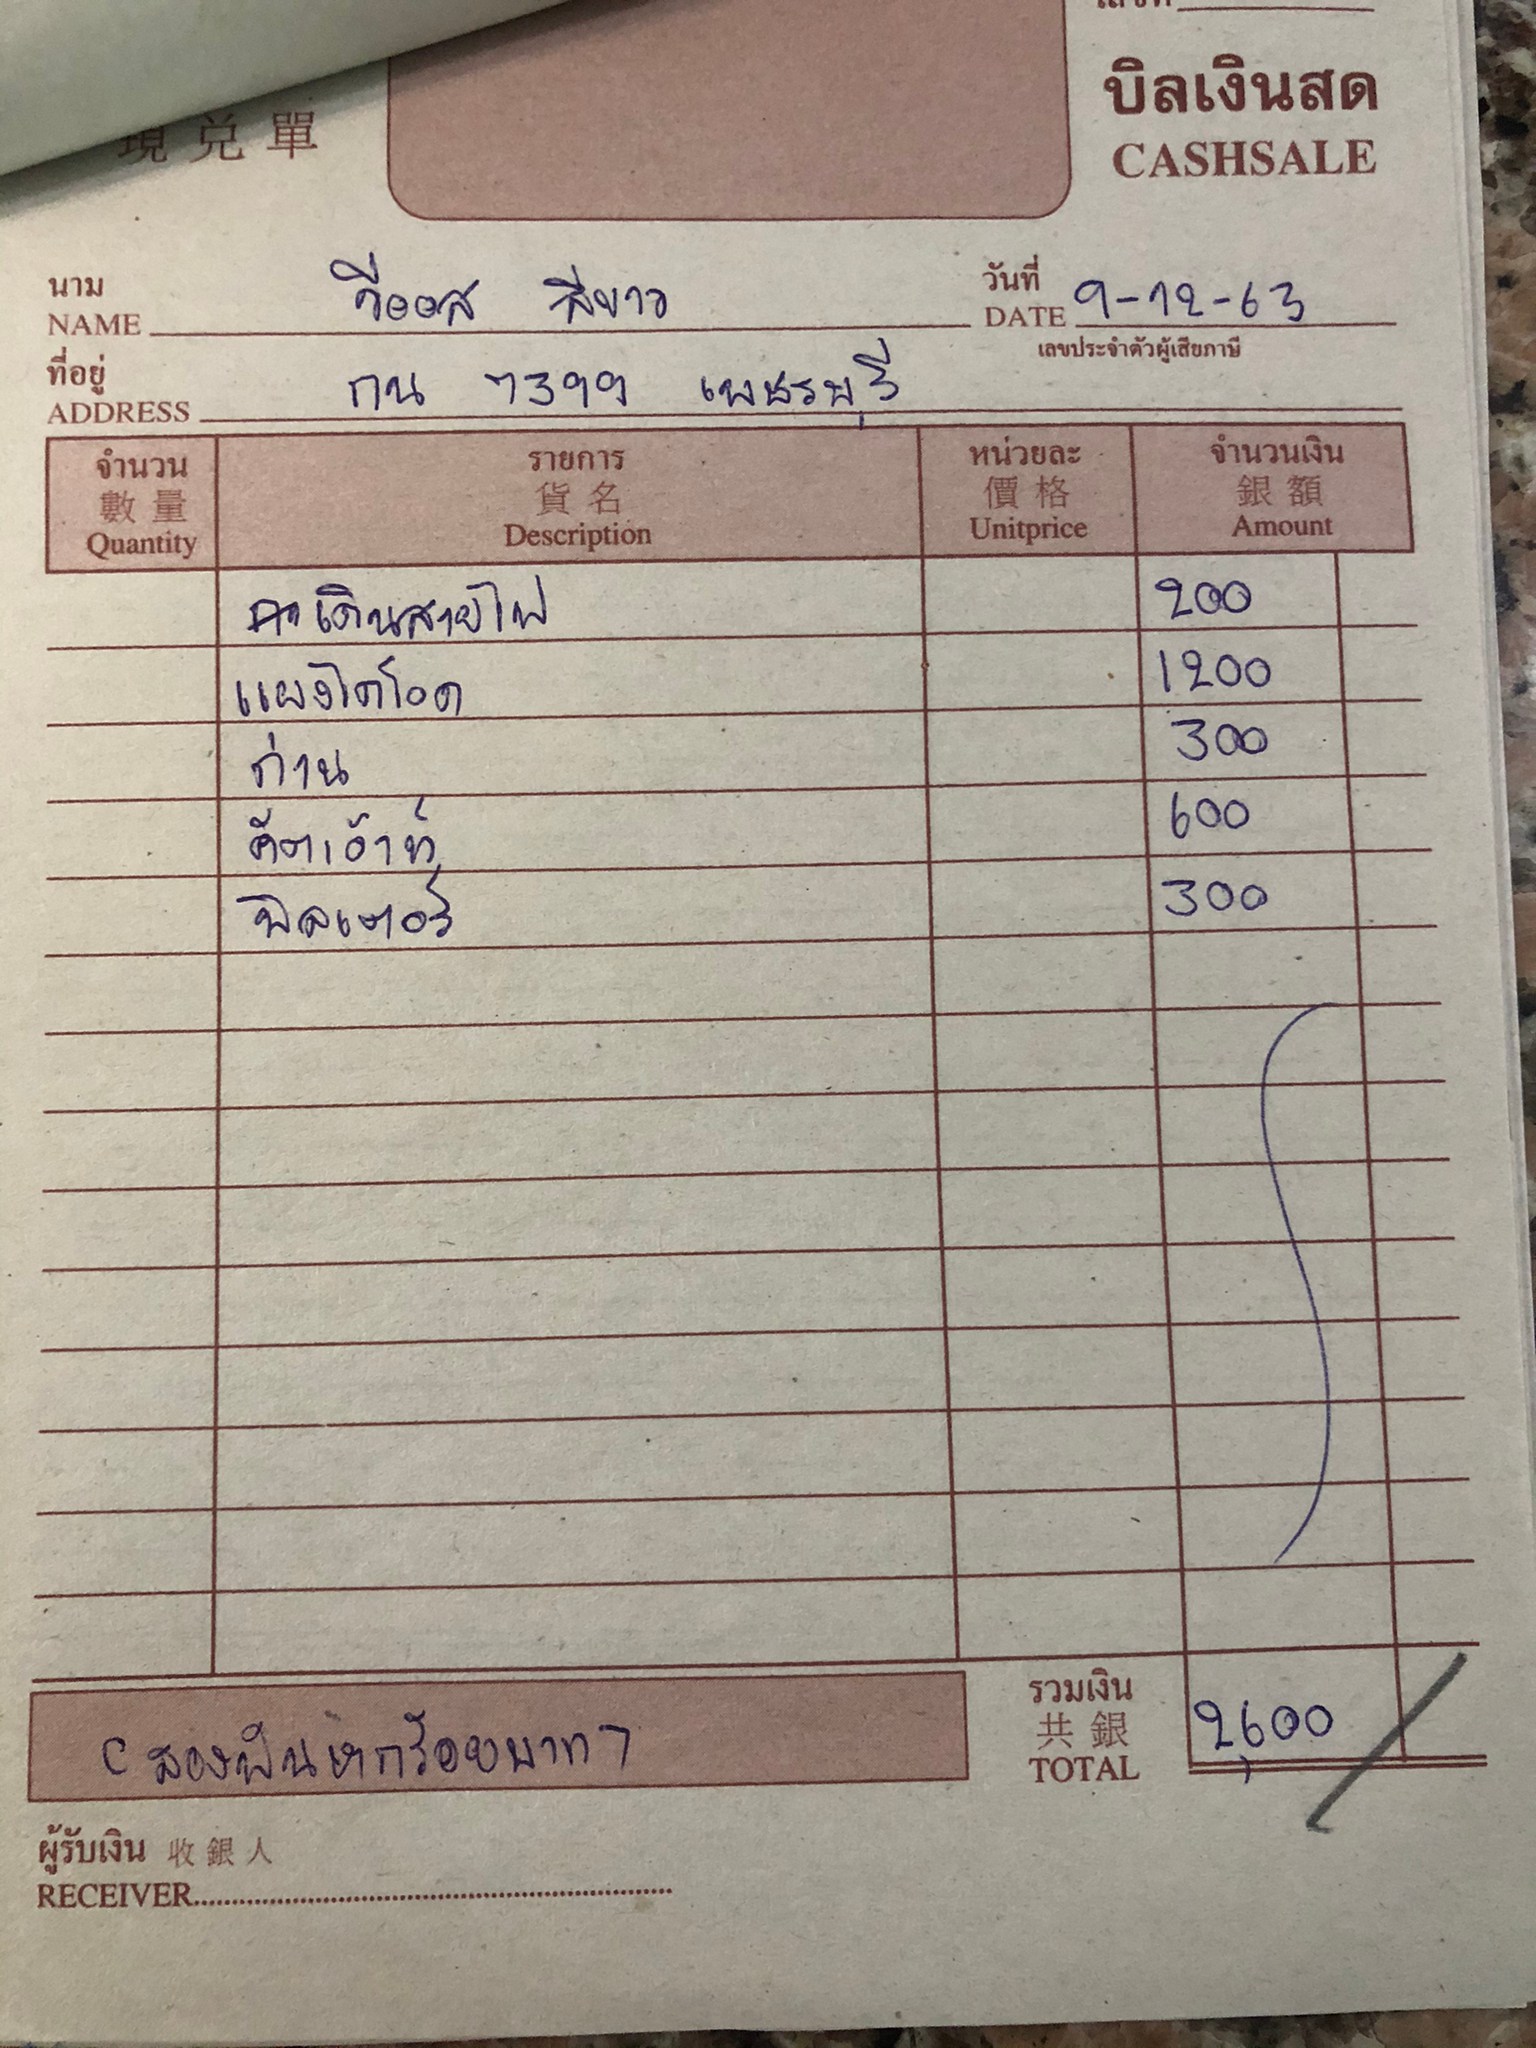 เลขที่
現兑單
บิลเงินสด
CASHSALE
นาม
NAME วีออส สีขาว
วันที่
DATE 9-12-63
เลขประจำตัวผู้เสียภาษี
ที่อยู่
ADDRESS กน 7399 เพชรบุรี
จำนวน รายการ หน่วยละ จำนวนเงิน
數量 貨名 價格 銀額
Quantity Description Unitprice Amount
เดินสายไฟ 200
แผงไดโอด 1200
ถ่าน 300
คัตเอ้าท์ 600
ฟิลเตอร์ 300
รวมเงิน
共銀
TOTAL 2,600
(สองพันหกร้อยบาท)
ผู้รับเงิน 收銀人
RECEIVER